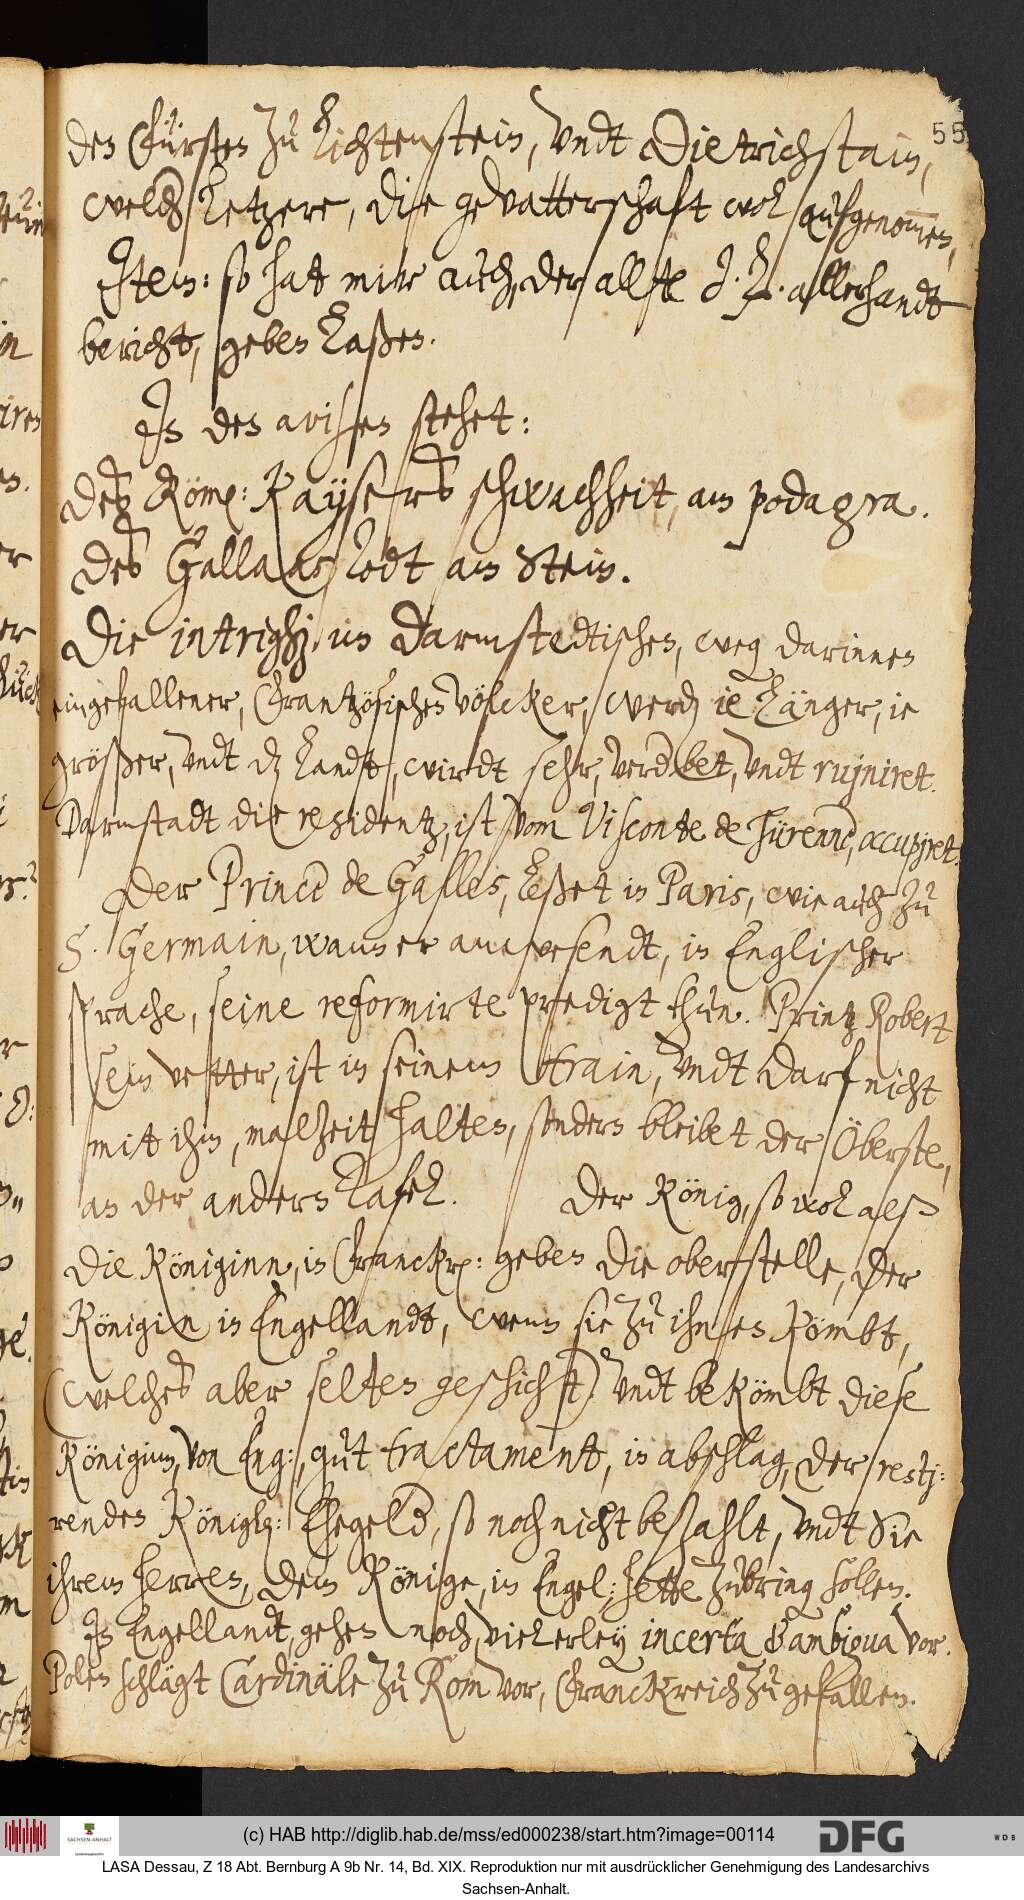 55
den Fürsten zu Lichtenstein, undt Dietrichstain,
welch letzere, die gevatterschaft wol aufgenom̅en,
Item: so hat mir auch, der allte J. L. allerhandt
bericht, geben laßen.
In den avisen stehet:
Des Röm: Kaysers schwachheit, am podagra.
Des Gallaas Todt am Stein.
Die intrighj im Darmstedtischen, weg. darinnen
eingefallener, Frantzösischen völcker, werd. ie länger, ie
größer, undt d. landt, wirdt sehr, verderbet, undt rujniret.
Darmstadt die residentz, ist vom Visconte de Türenne, occupjret.
Der Prince de Galles, leßet in Paris, wie auch zu
S. Germain, wann er anwesendt, in Englischer
sprache, seine reformirte predigt thun. Printz Robert
sein vetter, ist in seinem train, undt darf nicht
mit ihm, malzeit halten, sondern bleibet der Öberste,
an der andern Tafel. Der König, so wol alß
die Königinn, in Franckr: geben die oberstelle, der
Königin in Engellandt, wenn sie zu ihnen kömbt,
(welches aber selten geschicht) undt bekömbt diese
Königinn, von Eng:, gut tractament, in abschlag, der restj:
renden Königl: Ehegelder, so noch nicht bezahlt, undt Sie
ihrem herren, dem Könige, in Engel: hette zubring. sollen.
In Engellandt, gehen noch, vielerley incerta & ambigua vor.
Polen schlägt Cardinäle zu Rom vor, Franckreich zu gefallen.
(c) HAB http://diglib.hab.de/mss/ed000238/start.htm?image=00114
SACHSEN-ANHALT
DFG
WDB
LASA Dessau, Z 18 Abt. Bernburg A 9b Nr. 14, Bd. XIX. Reproduktion nur mit ausdrücklicher Genehmigung des Landesarchivs
Sachsen-Anhalt.